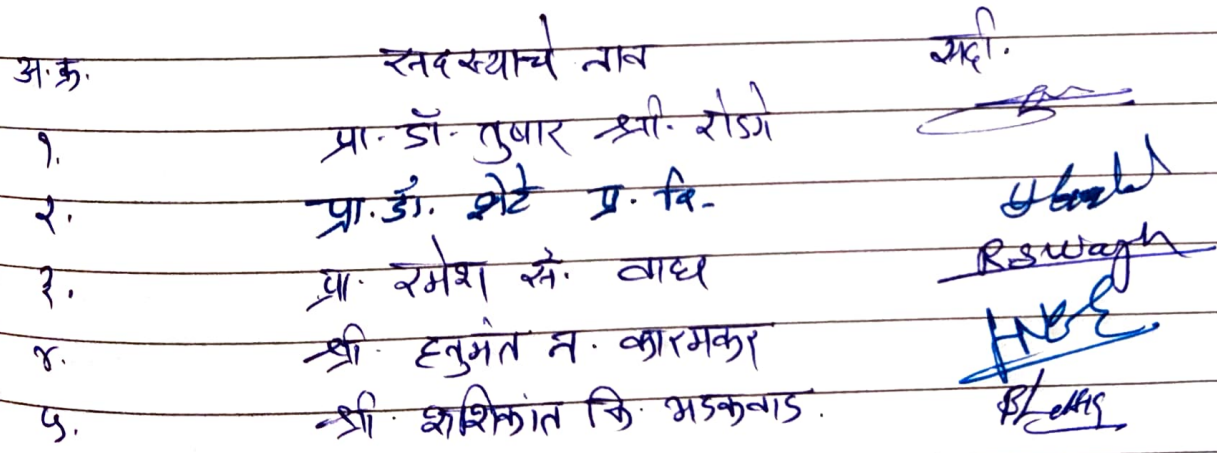 अ.क्र. सदस्याचे नाव सही.
१. प्रा. डॉ. तुषार श्री. रोडगे
२. प्रा. डॉ. शेटे प्र. वि.
३. प्रा. रमेश से. वाघ RSWagh
४. श्री. हनुमंत न. कारमकर
५. श्री. शशिकांत कि. भडकवाड.